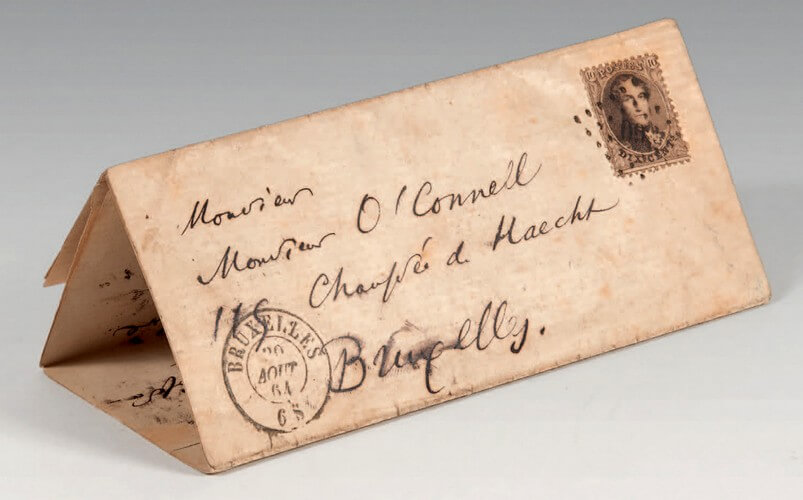 POSTES
10 10
DIX CENTS
Monsieur
Monsieur O'Connell
Chaussée de Haecht
115
Bruxelles.
BRUXELLES
20
AOUT
64
6 S